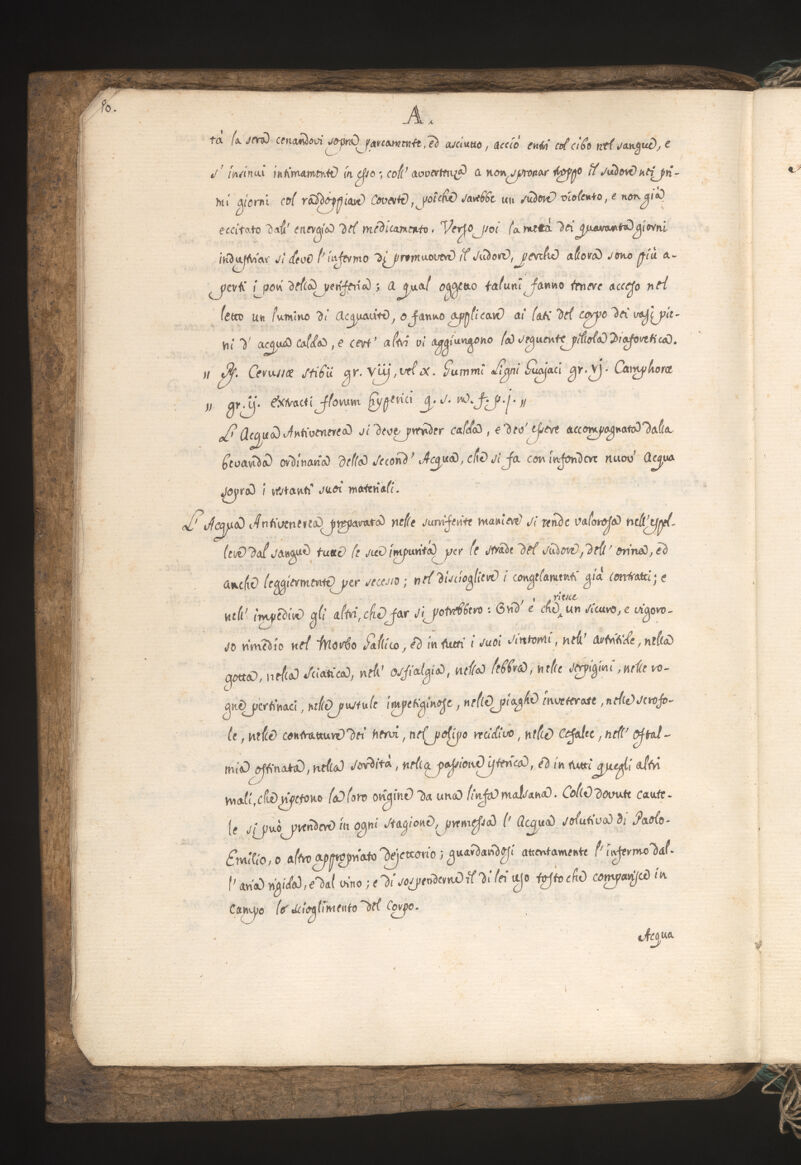 80.
A.
tà la sera cenandovi sopra parcamente, ed asciutto, acciò entri col cibo nel sangue, e
s' insinui intimamente in esso; coll' avvertenza a non spronar troppo il sudore nei pri-
mi giorni col raddoppiare coverte, poiche sarebbe un sudore violento, e non già
eccitato dall' energia del medicamento. Verso poi la metà dei quaranta giorni
industriar si deve l' infermo di promuovere il sudore, perche allora sono più a-
perti i pori della periferia; a qual oggetto taluni fanno tenere acceso nel
letto un lumino di Acquavite, o fanno applicare ai lati del corpo dei vasi pie-
ni d' acqua calda, e cert' altri vi aggiungono la seguente pillola Diaforetica.
" ℞. Cerussæ Stibii gr. viij, vel x. Gummi Ligni Guajaci gr. vj. Camphoræ
" gr. ij. extracti florum Hyperici q. s. m. f. p. j. "
L' Acqua Antivenerea si deve prender calda, e dev' essere accompagnata dalla
bevanda ordinaria della second' Acqua, che si fa con infondere nuov' Acqua
sopra i restanti suoi materiali.
L' Acqua Antivenerea preparata nelle surriferite maniere si rende valorosa nell' espel-
lere dal sangue tutte le sue impurità per le strade del sudore, dell' orina, ed
anche leggiermente per secesso; nel disciogliere i congelamenti già contratti; e
nell' impedire gli altri, che far si potrebbero: Ond' è che riesce un sicuro, e vigoro-
so rimedio nel Morbo Gallico, ed in tutti i suoi sintomi, nell' artritide, nella
gotta, nella Sciatica, nell' osfialgia, nella lebbra, nelle serpigini, nelle ro-
gne pertinaci, nelle pustule impetiginose, nelle piaghe inveterate, nelle scrofo-
le, nelle contratture dei nervi, nel polipo recidivo, nelle Cefalee, nell' oftal-
mia ostinata, nella sordità, nella passione isterica, ed in tutti quegli altri
mali, che ripetono la loro origine da una linfa malsana. Colle dovute caute-
le si può prendere in ogni stagione, premessa l' Acqua solutiva di Paolo-
Emilio, o altro appropriato dejettorio; guardandosi attentamente l' infermo dal-
l' aria rigida, e dal vino; e di sospenderne il di lei uso tosto che comparisce in
Campo lo scioglimento del Corpo.
Acqua